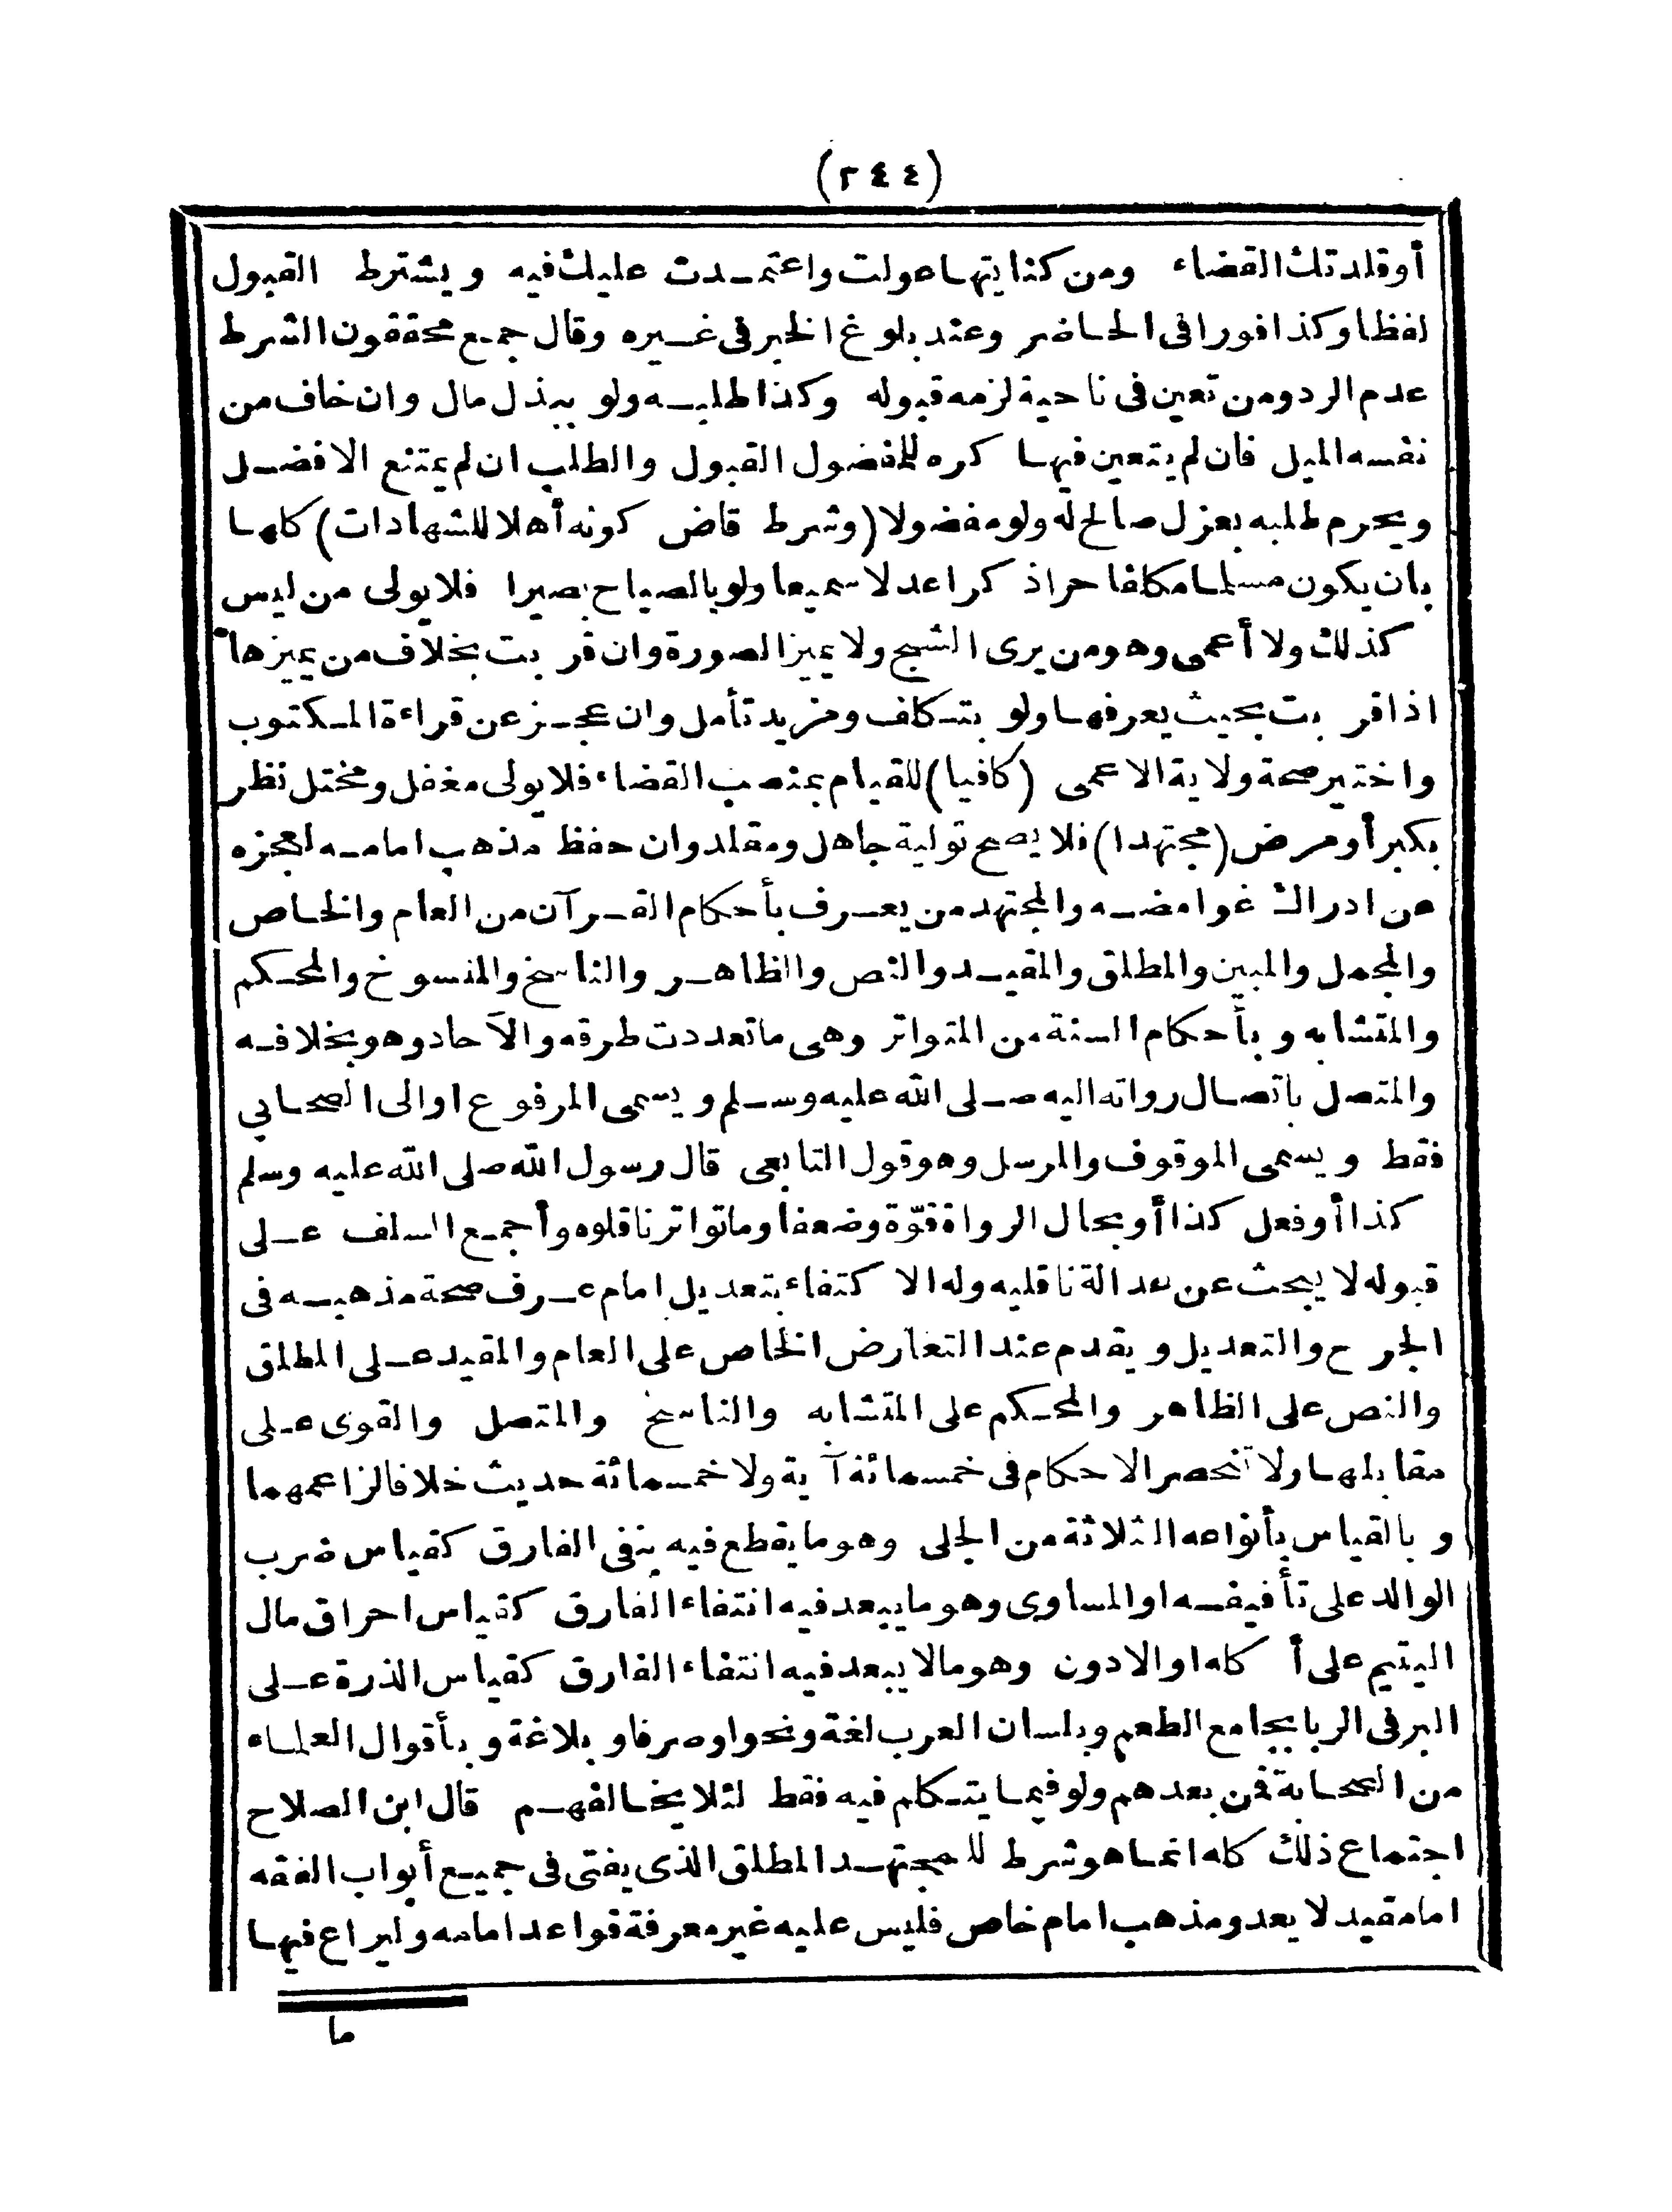 (٢٤٤)
أوقلدتك القضاء ومن كنايتها عولت واعتمدت عليك فيه ويشترط القبول
لفظا وكذا فورا فى الحاضر وعند بلوغ الخبر فى غيره وقال جمع محققون الشرط
عدم الرد ومن تعين فى ناحية لزمه قبوله وكذا طلبه ولو ببذل مال وان خاف من
نفسه الميل فان لم يتعين فيها كره للمفضول القبول والطلب ان لم يمتنع الافضل
ويحرم طلبه بعزل صالح له ولو مفضولا (وشرط قاض كونه أهلا للشهادات) كلها
بان يكون مسلما مكلفا حرا ذكرا عدلا سميعا ولو بالصياح بصيرا فلا يولى من ليس
كذلك ولا أعمى وهو من يرى الشبح ولا يميز الصورة وان قربت بخلاف من يميزها
اذا قربت بحيث يعرفها ولو بتكلف ومزيد تأمل وان عجز عن قراءة المكتوب
واختير صحة ولاية الاعمى (كافيا) للقيام بمنصب القضاء فلا يولى مغفل ومختل نظر
بكبر أو مرض (مجتهدا) فلا يصح تولية جاهل ومقلد وان حفظ مذهب امامه لعجزه
عن ادراك غوامضه والمجتهد من يعرف بأحكام القرآن من العام والخاص
والمجمل والمبين والمطلق والمقيد والنص والظاهر والناسخ والمنسوخ والمحكم
والمتشابه وبأحكام السنة من المتواتر وهى ما تعددت طرقه والآحاد وهو بخلافه
والمتصل باتصال رواته اليه صلى الله عليه وسلم ويسمى المرفوع اوالى الصحابي
فقط ويسمى الموقوف والمرسل وهو قول التابعى قال رسول الله صلى الله عليه وسلم
كذا أو فعل كذا أو بحال الرواة قوّة وضعفا وما تواتر ناقلوه وأجمع السلف على
قبوله لا يبحث عن عدالة ناقليه وله الاكتفاء بتعديل امام عرف صحة مذهبه فى
الجرح والتعديل ويقدم عند التعارض الخاص على العام والمقيد على المطلق
والنص على الظاهر والمحكم على المتشابه والناسخ والمتصل والقوى على
مقابلها ولا تنحصر الاحكام فى خمسمائة آية ولا خمسمائة حديث خلافا لزاعمهما
وبالقياس بأنواعه الثلاثة من الجلى وهو ما يقطع فيه بنفى الفارق كقياس ضرب
الوالد على تأفيفه اوالمساوى وهو ما يبعد فيه انتفاء الفارق كقياس احراق مال
اليتيم على أكله اوالادون وهو ما لا يبعد فيه انتفاء الفارق كقياس الذرة على
البر فى الربا بجامع الطعم وبلسان العرب لغة ونحوا وصرفا وبلاغة وبأقوال العلماء
من الصحابة فمن بعدهم ولو فيما يتكلم فيه فقط لئلا يخالفهم قال ابن الصلاح
اجتماع ذلك كله انما هو شرط للمجتهد المطلق الذى يفتى فى جميع أبواب الفقه
اما مقيد لا يعدو مذهب امام خاص فليس عليه غير معرفة قواعد امامه وليراع فيها
ما